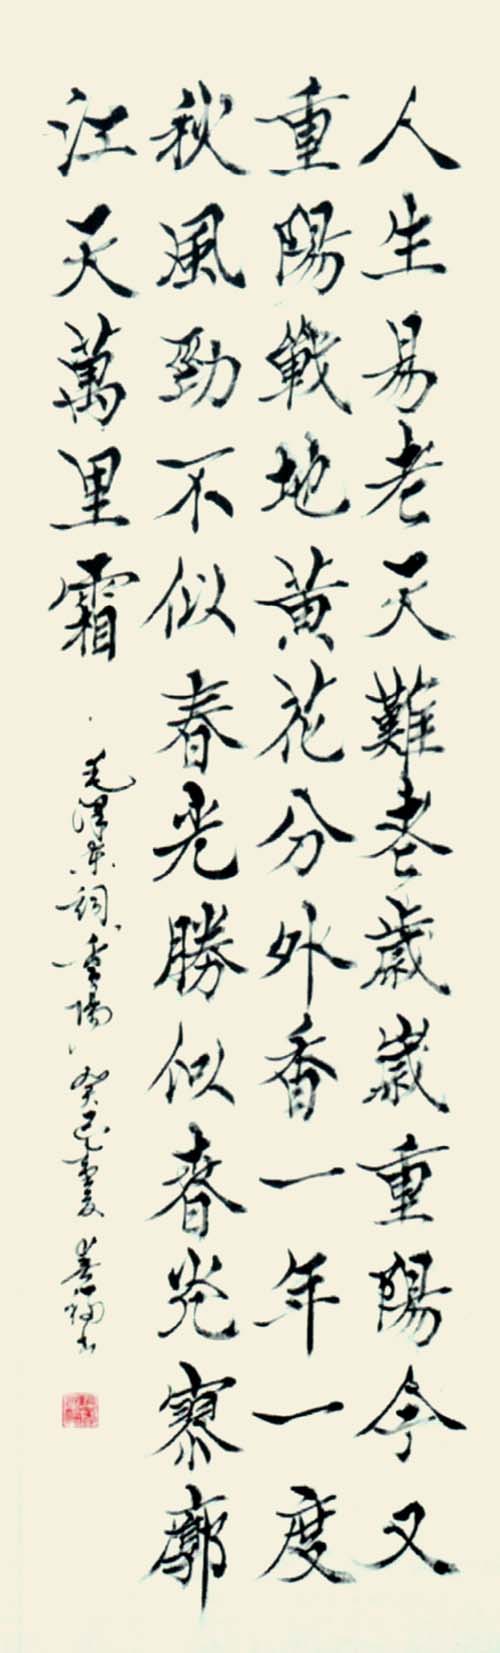 人生易老天難老歲歲重陽今又
重陽戰地黃花分外香一年一度
秋風勁不似春光勝似春光寥廓
江天萬里霜
毛澤東詞重陽癸巳夏